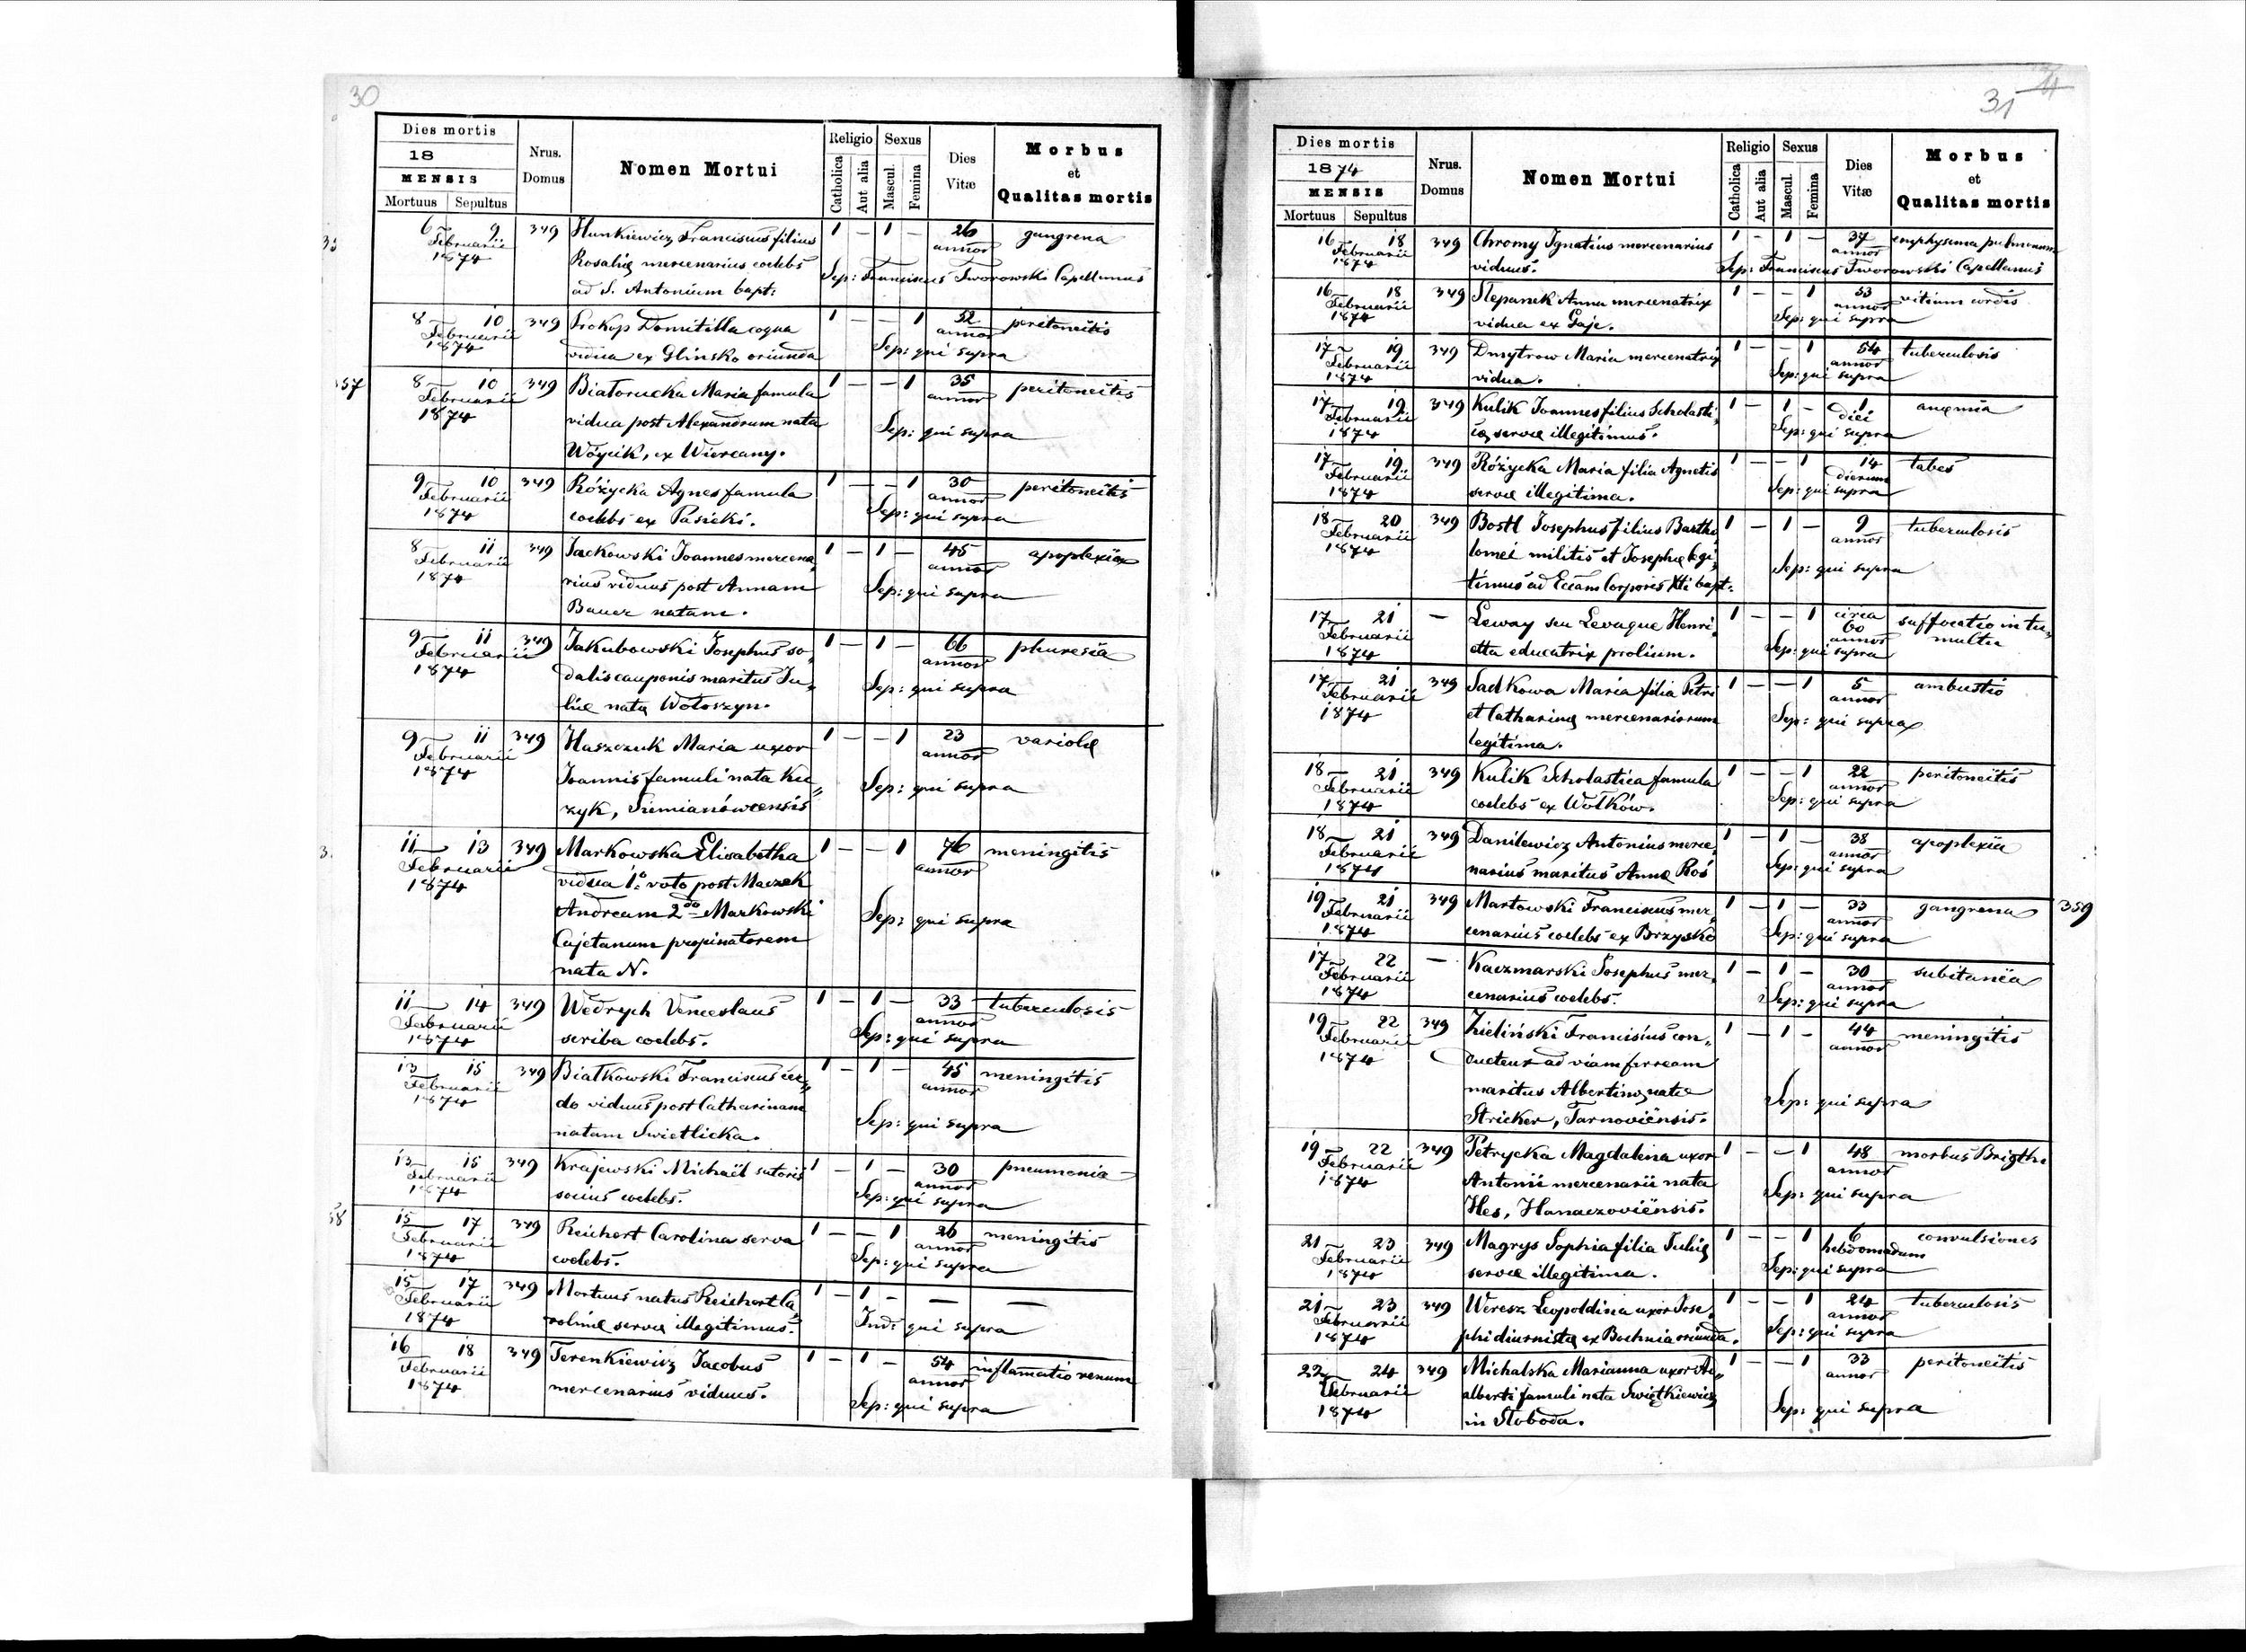 30
Dies mortis
18
MENSIS
Mortuus Sepultus
Nrus.
Domus
Nomen Mortui
Religio
Catholica
Aut alia
Sexus
Mascul.
Femina
Dies
Vitæ
Morbus
et
Qualitas mortis
6 9 349 Hunkiewicz Franciscus filius 1 – 1 – 26 gangrena
Februarii annor
1874 Rosaliæ mercenarius coelebs Sep: Franciscus Tworowski Capellanus
ad S. Antonium bapt:
8 10 349 Prokop Domitilla coqua 1 – – 1 52 peritoneitis
Februarii annor
1874 vidua ex Glinsko oriunda Sep: qui supra
57 8 10 349 Białorucka Maria famula 1 – – 1 35 peritoneitis
Februarii annor
1874 vidua post Alexandrum nata Sep: qui supra
Wóycik, ex Wiercany.
9 10 349 Różycka Agnes famula 1 – – 1 30 peritoneitis
Februarii annor
1874 coelebs ex Pasieki. Sep: qui supra
8 11 349 Jackowski Joannes mercena, 1 – 1 – 45 apoplexia
Februarii annor
1874 rius viduus post Annam Sep: qui supra
Bauer natam.
9 11 349 Jakubowski Josephus so, 1 – 1 – 66 phuresia
Februarii annor
1874 dalis cauponis maritus Ju, Sep: qui supra
liæ natæ Wołoszyn.
9 11 349 Haszczuk Maria uxor 1 – – 1 23 variolæ
Februarii annor
1874 Joannis famuli nata Ku„ Sep: qui supra
zyk, Siemianówcensis
3 11 13 349 Markowska Elisabetha 1 – – 1 76 meningitis
Februarii annor
1874 vidua 1º voto post Maczek
Andream 2do Markowski Sep: qui supra
Cajetanum propinatorem
nata N.
11 14 349 Wedrych Venceslaus 1 – 1 – 33 tuberculosis
Februarii annor
1874 scriba coelebs. Sep: qui supra
13 15 349 Białkowski Franciscus cer„ 1 – 1 – 45 meningitis
Februarii annor
1874 do viduus post Catharinam Sep: qui supra
natam Swietlicka.
13 15 349 Krajewski Michaël sutoris 1 – 1 – 30 pneumonia
Februarii annor
1874 socius coelebs. Sep: qui supra
58 15 17 349 Reichert Carolina serva 1 – – 1 26 meningitis
Februarii annor
1874 coelebs. Sep: qui supra
15 17 349 Mortuus natus Reichert Ca, 1 – 1 – — —
Februarii
1874 rolinæ servæ illegitimus. Ind: qui supra
16 18 349 Terenkiewicz Jacobus 1 – 1 – 54 inflamatio renum
Februarii annor
1874 mercenarius viduus. Sep: qui supra
31
Dies mortis
1874
MENSIS
Mortuus Sepultus
Nrus.
Domus
Nomen Mortui
Religio
Catholica
Aut alia
Sexus
Mascul.
Femina
Dies
Vitæ
Morbus
et
Qualitas mortis
16 18 349 Chromy Ignatius mercenarius 1 – 1 – 37 emphysema pulmonum
Februarii annor
1874 viduus. Sep: Franciscus Tworowski Capellanus
16 18 349 Stepanek Anna mercenatrix 1 – – 1 53 vitium cordis
Februarii annor
1874 vidua ex Gaje. Sep: qui supra
17 19 349 Dmytrow Maria mercenatrix 1 – – 1 54 tuberculosis
Februarii annor
1874 vidua. Sep: qui supra
17 19 349 Kulik Joannes filius Scholasti, 1 – 1 – 1 anæmia
Februarii diei
1874 cæ servæ illegitimus. Sep: qui supra
17 19 349 Różycka Maria filia Agnetis 1 – – 1 14 tabes
Februarii dierum
1874 servæ illegitima. Sep: qui supra
18 20 349 Bostl Josephus filius Bartho, 1 – 1 – 9 tuberculosis
Februarii annor
1874 lomei militis et Josephæ legi, Sep: qui supra
timus ad Eccam Corporis Xti bapt:
17 21 — Leway seu Levaque Henri, 1 – – 1 circa 60 suffocatio in tu,
Februarii annor multu
1874 etta educatrix prolium. Sep: qui supra
17 21 349 Sadkowa Maria filia Petri 1 – – 1 5 ambustio
Februarii annor
1874 et Catharinæ mercenariorum Sep: qui supra
legitima.
18 21 349 Kulik Scholastica famula 1 – – 1 22 peritoneitis
Februarii annor
1874 coelebs ex Wołków. Sep: qui supra
18 21 349 Danilewicz Antonius merce, 1 – 1 – 38 apoplexia
Februarii annor
1874 narius maritus Annæ Roś Sep: qui supra
19 21 349 Martowski Franciscus mer, 1 – 1 – 33 gangrena 359
Februarii annor
1874 cenarius coelebs ex Brzysko Sep: qui supra
17 22 — Kaczmarski Josephus mer, 1 – 1 – 30 subitanëa
Februarii annor
1874 cenarius coelebs. Sep: qui supra
19 22 349 Zieliński Franciscus con, 1 – 1 – 44 meningitis
Februarii annor
1874 ducteur ad viam ferream
maritus Albertinæ natæ Sep: qui supra
Stricker, Tarnoviënsis.
19 22 349 Petrycka Magdalena uxor 1 – – 1 48 morbus Brigthi
Februarii annor
1874 Antonii mercenarii nata Sep: qui supra
Hes, Hanaczoviënsis.
21 23 349 Magrys Sophia filia Juliæ 1 – – 1 6 convulsiones
Februarii hebdomadum
1874 servæ illegitima. Sep: qui supra
21 23 349 Weresz Leopoldina uxor Jose, 1 – – 1 24 tuberculosis
Februarii annor
1874 phi diurnistæ ex Bochnia oriunda. Sep: qui supra
22 24 349 Michalska Marianna uxor Ad, 1 – – 1 33 peritoneitis
Februarii annor
1874 alberti famuli nata Swiątkiewicz Sep: qui supra
in Sloboda.